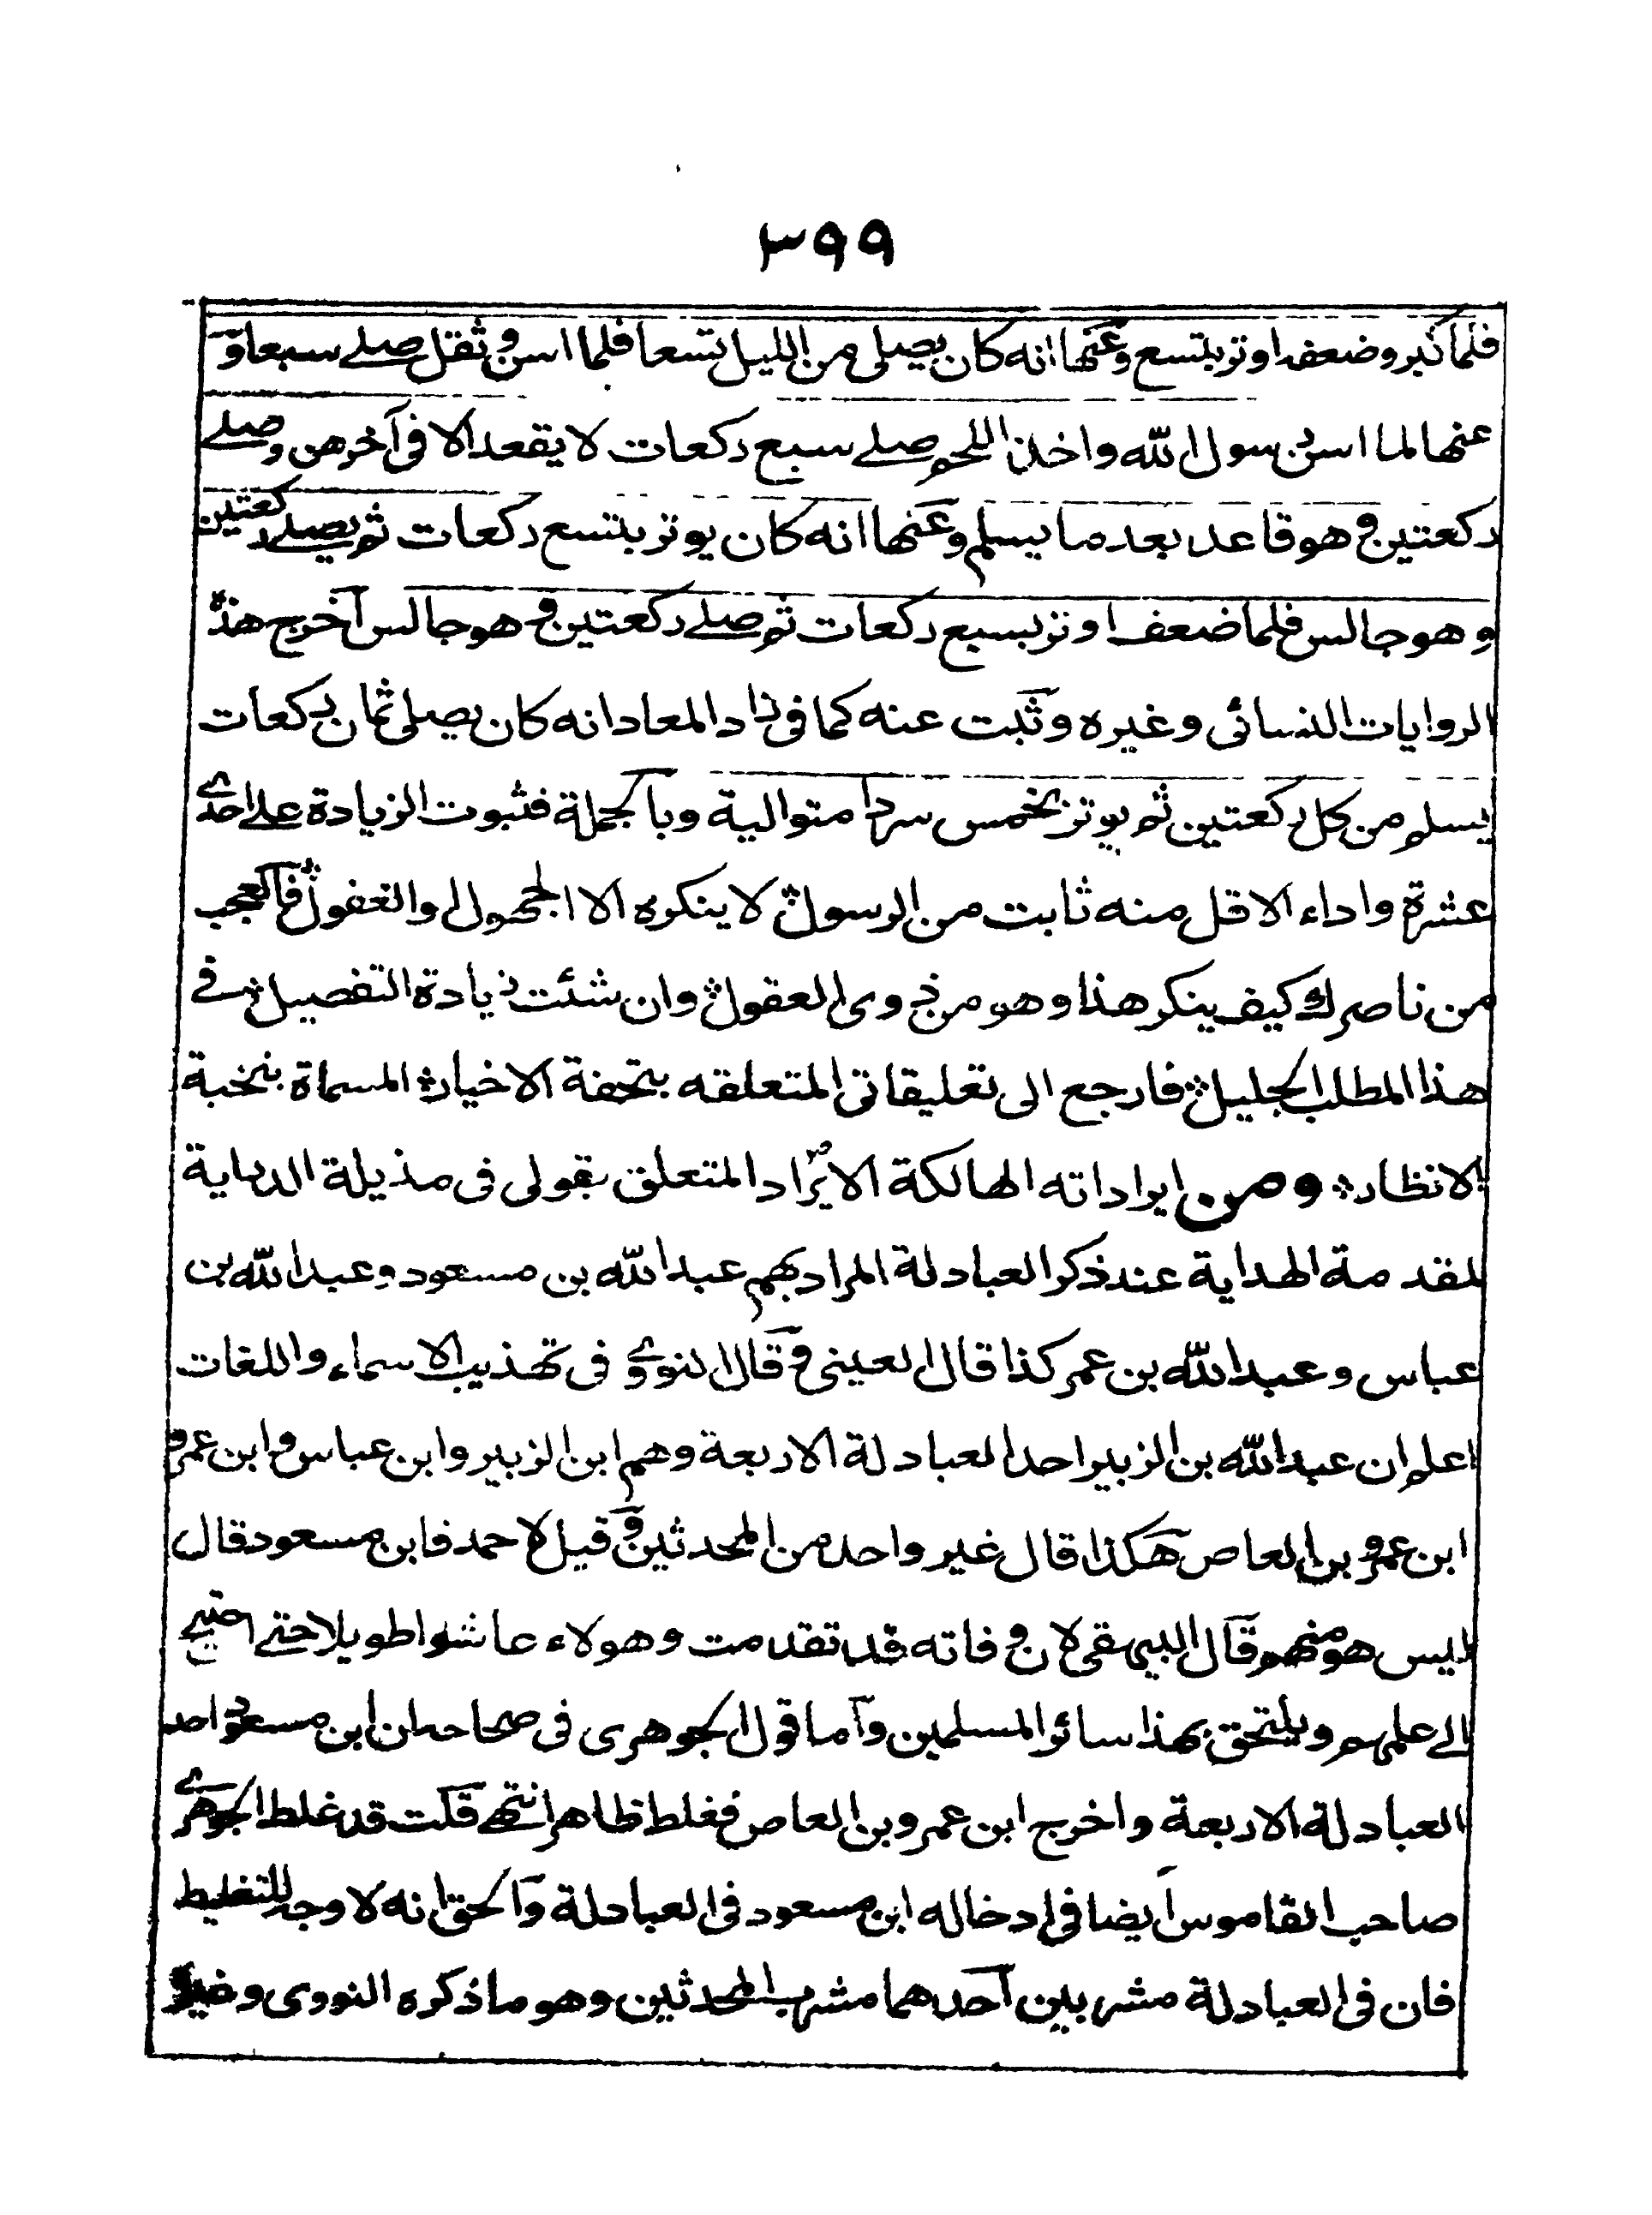 ٣٩٩
فلما كبر وضعف اوتر بتسع وعنها انه كان يصلى من الليل تسعا فلما اسن وثقل صلے سبعا و
عنها لما اسن رسول الله واخذ اللحم صلے سبع ركعات لا يقعد الا فى آخرهن وصلے
ركعتين وهو قاعد بعد ما يسلم وعنها انه كان يوتر بتسع ركعات ثم يصلے ركعتين
وهو جالس فلما ضعف اوتر بسبع ركعات ثم صلے ركعتين وهو جالس آخرج هذه
الروايات النسائى وغيره وثبت عنه كما فى زاد المعاد انه كان يصلى ثمان ركعات
يسلم من كل ركعتين ثم يوتر بخمس سردا متوالية وبالجملة فثبوت الزيادة علے احدے
عشرة واداء الاقل منه ثابت من الرسول لا ينكره الا الجهول او الغفول فالعجب
من ناصرك كيف ينكر هذا وهو من ذوى العقول وان شئت زيادة التفصيل فے
هذا المطلب الجليل فارجع الى تعليقاتى المتعلقه بتحفة الاخيار المسماة بنخبة
الانظار ومن ايراداته الهالكة الايراد المتعلق بقولى فى مذيلة الدراية
لمقدمة الهداية عند ذكر العبادلة المراد بهم عبد الله بن مسعود وعبد الله بن
عباس وعبد الله بن عمر كذا قال العينى وقال النووے فى تهذيب الاسماء واللغات
اعلم ان عبد الله بن الزبير احد العبادلة الاربعة وهم ابن الزبير وابن عباس وابن عمر و
ابن عمرو بن العاص هكذا قال غير واحد من المحدثين وقيل لاحمد فابن مسعود قال
ليس هو منهم قال البيهقى لان وفاته قد تقدمت وهولاء عاشوا طويلا حتے احتيج
الے علمهم ويلتحق بهذا سائر المسلمين وآما قول الجوهرى فى صحاحه ان ابن مسعود احد
العبادلة الاربعة واخرج ابن عمرو بن العاص فغلط ظاهر انتهے قلت قد غلط الجوهرے
صاحب القاموس آيضا فى ادخاله ابن مسعود فى العبادلة وآلحق انه لا وجه للتغليط
فان فى العبادلة مشربين آحدهما مشرب المحدثين وهو ما ذكره النووى وغيره